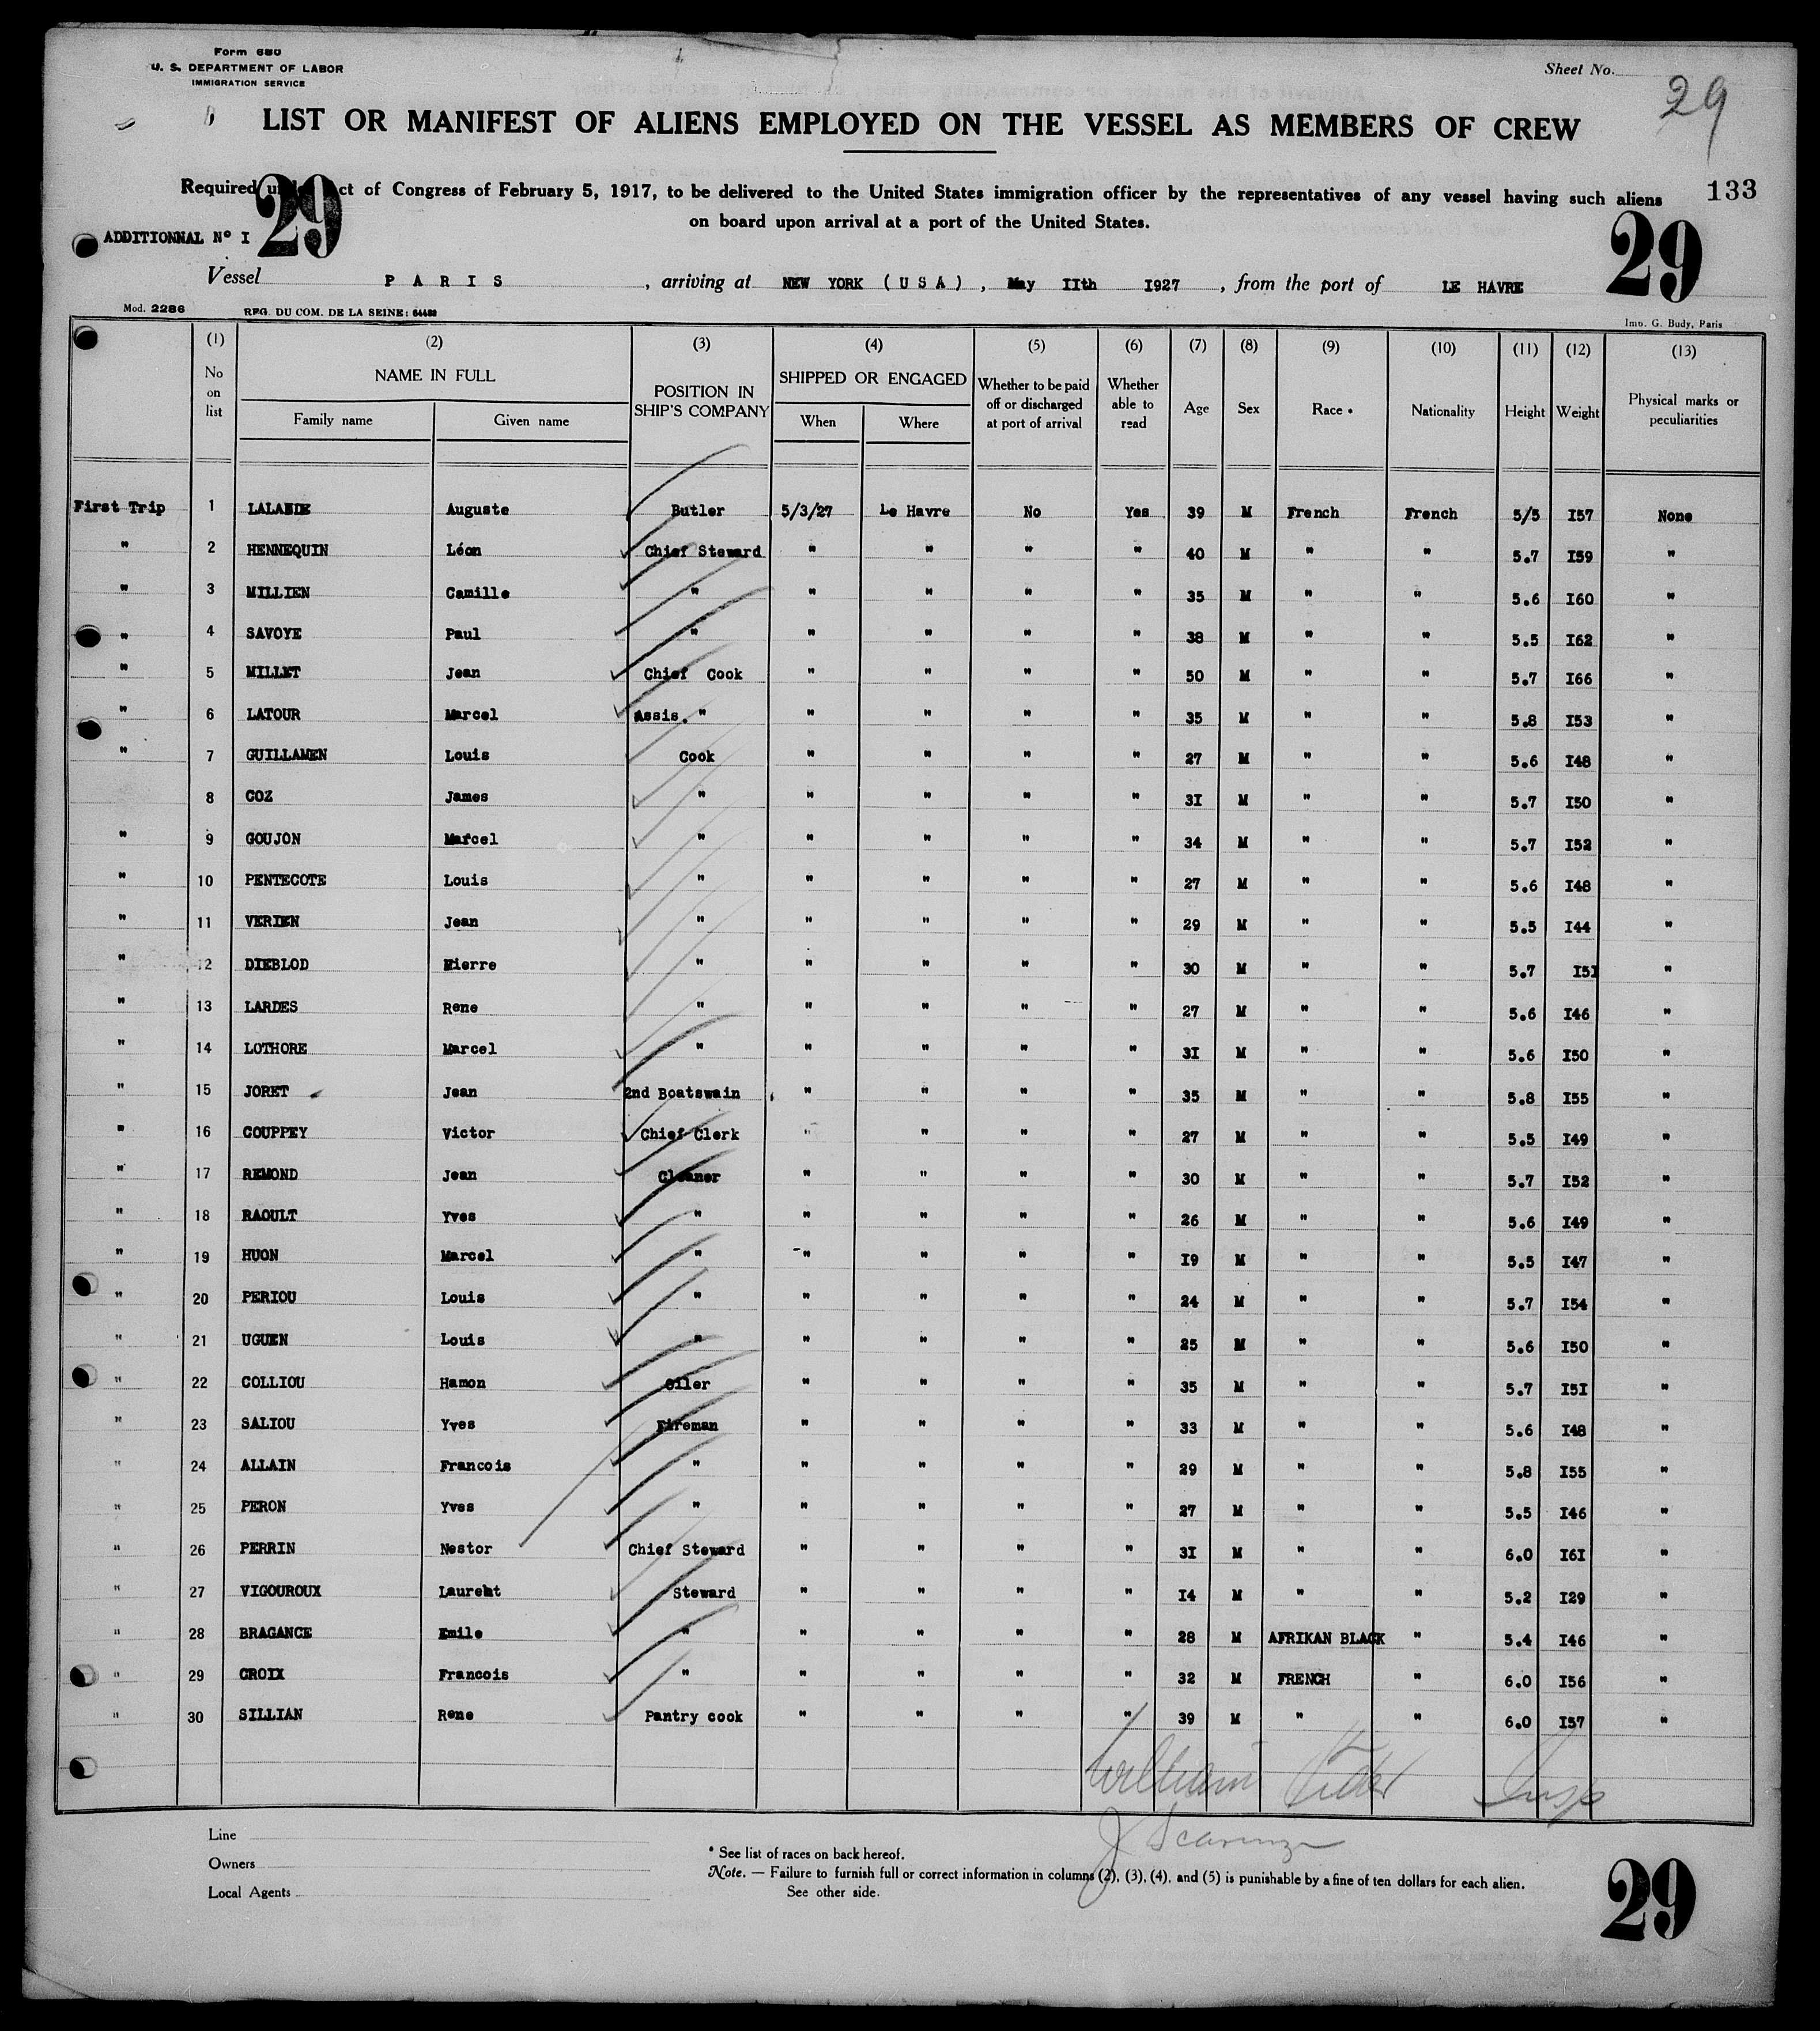 Form 680
U. S. DEPARTMENT OF LABOR
IMMIGRATION SERVICE
Sheet No.
29
LIST OR MANIFEST OF ALIENS EMPLOYED ON THE VESSEL AS MEMBERS OF CREW
Required under Act of Congress of February 5, 1917, to be delivered to the United States immigration officer by the representatives of any vessel having such aliens
133
on board upon arrival at a port of the United States.
29
29
ADDITIONNAL N° I
Vessel P A R I S , arriving at NEW YORK ( U S A ) , May IIth I927 , from the port of LE HAVRE
Mod. 2286 REG. DU COM. DE LA SEINE: Imp. G. Budy, Paris
(1) (2) (3) (4) (5) (6) (7) (8) (9) (10) (11) (12) (13)
No on list NAME IN FULL Family name Given name POSITION IN SHIP'S COMPANY SHIPPED OR ENGAGED When Where Whether to be paid off or discharged at port of arrival Whether able to read Age Sex Race * Nationality Height Weight Physical marks or peculiarities
First Trip 1 LALANDE Auguste Butler 5/3/27 Le Havre No Yes 39 M French French 5/5 I57 None
" 2 HENNEQUIN Léon Chief Steward " " " " 40 M " " 5.7 I59 "
" 3 MILLIEN Camille " " " " " 35 M " " 5.6 I60 "
" 4 SAVOYE Paul " " " " " 38 M " " 5.5 I62 "
" 5 MILLET Jean Chief Cook " " " " 50 M " " 5.7 I66 "
" 6 LATOUR Marcel Assis. " " " " " 35 M " " 5.8 I53 "
" 7 GUILLAMEN Louis Cook " " " " 27 M " " 5.6 I48 "
8 COZ James " " " " " 3I M " " 5.7 I50 "
" 9 GOUJON Marcel " " " " " 34 M " " 5.7 I52 "
" 10 PENTECOTE Louis " " " " " 27 M " " 5.6 I48 "
" 11 VERIEN Jean " " " " " 29 M " " 5.5 I44 "
" 12 DIEBLOD Pierre " " " " " 30 M " " 5.7 I5I "
" 13 LARDES Rene " " " " " 27 M " " 5.6 I46 "
" 14 LOTHORE Marcel " " " " " 3I M " " 5.6 I50 "
" 15 JORET Jean 2nd Boatswain " " " " 35 M " " 5.8 I55 "
" 16 COUPPEY Victor Chief Clerk " " " " 27 M " " 5.5 I49 "
" 17 REMOND Jean Cleaner " " " " 30 M " " 5.7 I52 "
" 18 RAOULT Yves " " " " " 26 M " " 5.6 I49 "
" 19 HUON Marcel " " " " " I9 M " " 5.5 I47 "
" 20 PERIOU Louis " " " " " 24 M " " 5.7 I54 "
" 21 UGUEN Louis " " " " " 25 M " " 5.6 I50 "
" 22 COLLIOU Hamon Oiler " " " " 35 M " " 5.7 I5I "
" 23 SALIOU Yves Fireman " " " " 33 M " " 5.6 I48 "
" 24 ALLAIN Francois " " " " " 29 M " " 5.8 I55 "
" 25 PERON Yves " " " " " 27 M " " 5.5 I46 "
" 26 PERRIN Nestor Chief Steward " " " " 3I M " " 6.0 I6I "
" 27 VIGOUROUX Laurent Steward " " " " I4 M " " 5.2 I29 "
" 28 BRAGANCE Emile " " " " " 28 M AFRIKAN BLACK " 5.4 I46 "
" 29 CROIX Francois " " " " " 32 M FRENCH " 6.0 I56 "
" 30 SILLIAN Rene Pantry cook " " " " 39 M " " 6.0 I57 "
William Insp
Line
Owners
Local Agents
* See list of races on back hereof.
Note. — Failure to furnish full or correct information in columns (2), (3), (4), and (5) is punishable by a fine of ten dollars for each alien.
See other side.
29